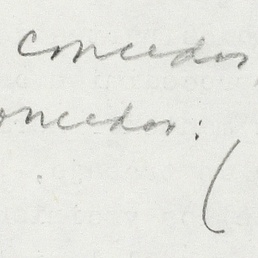 concedor
oncedor:
(